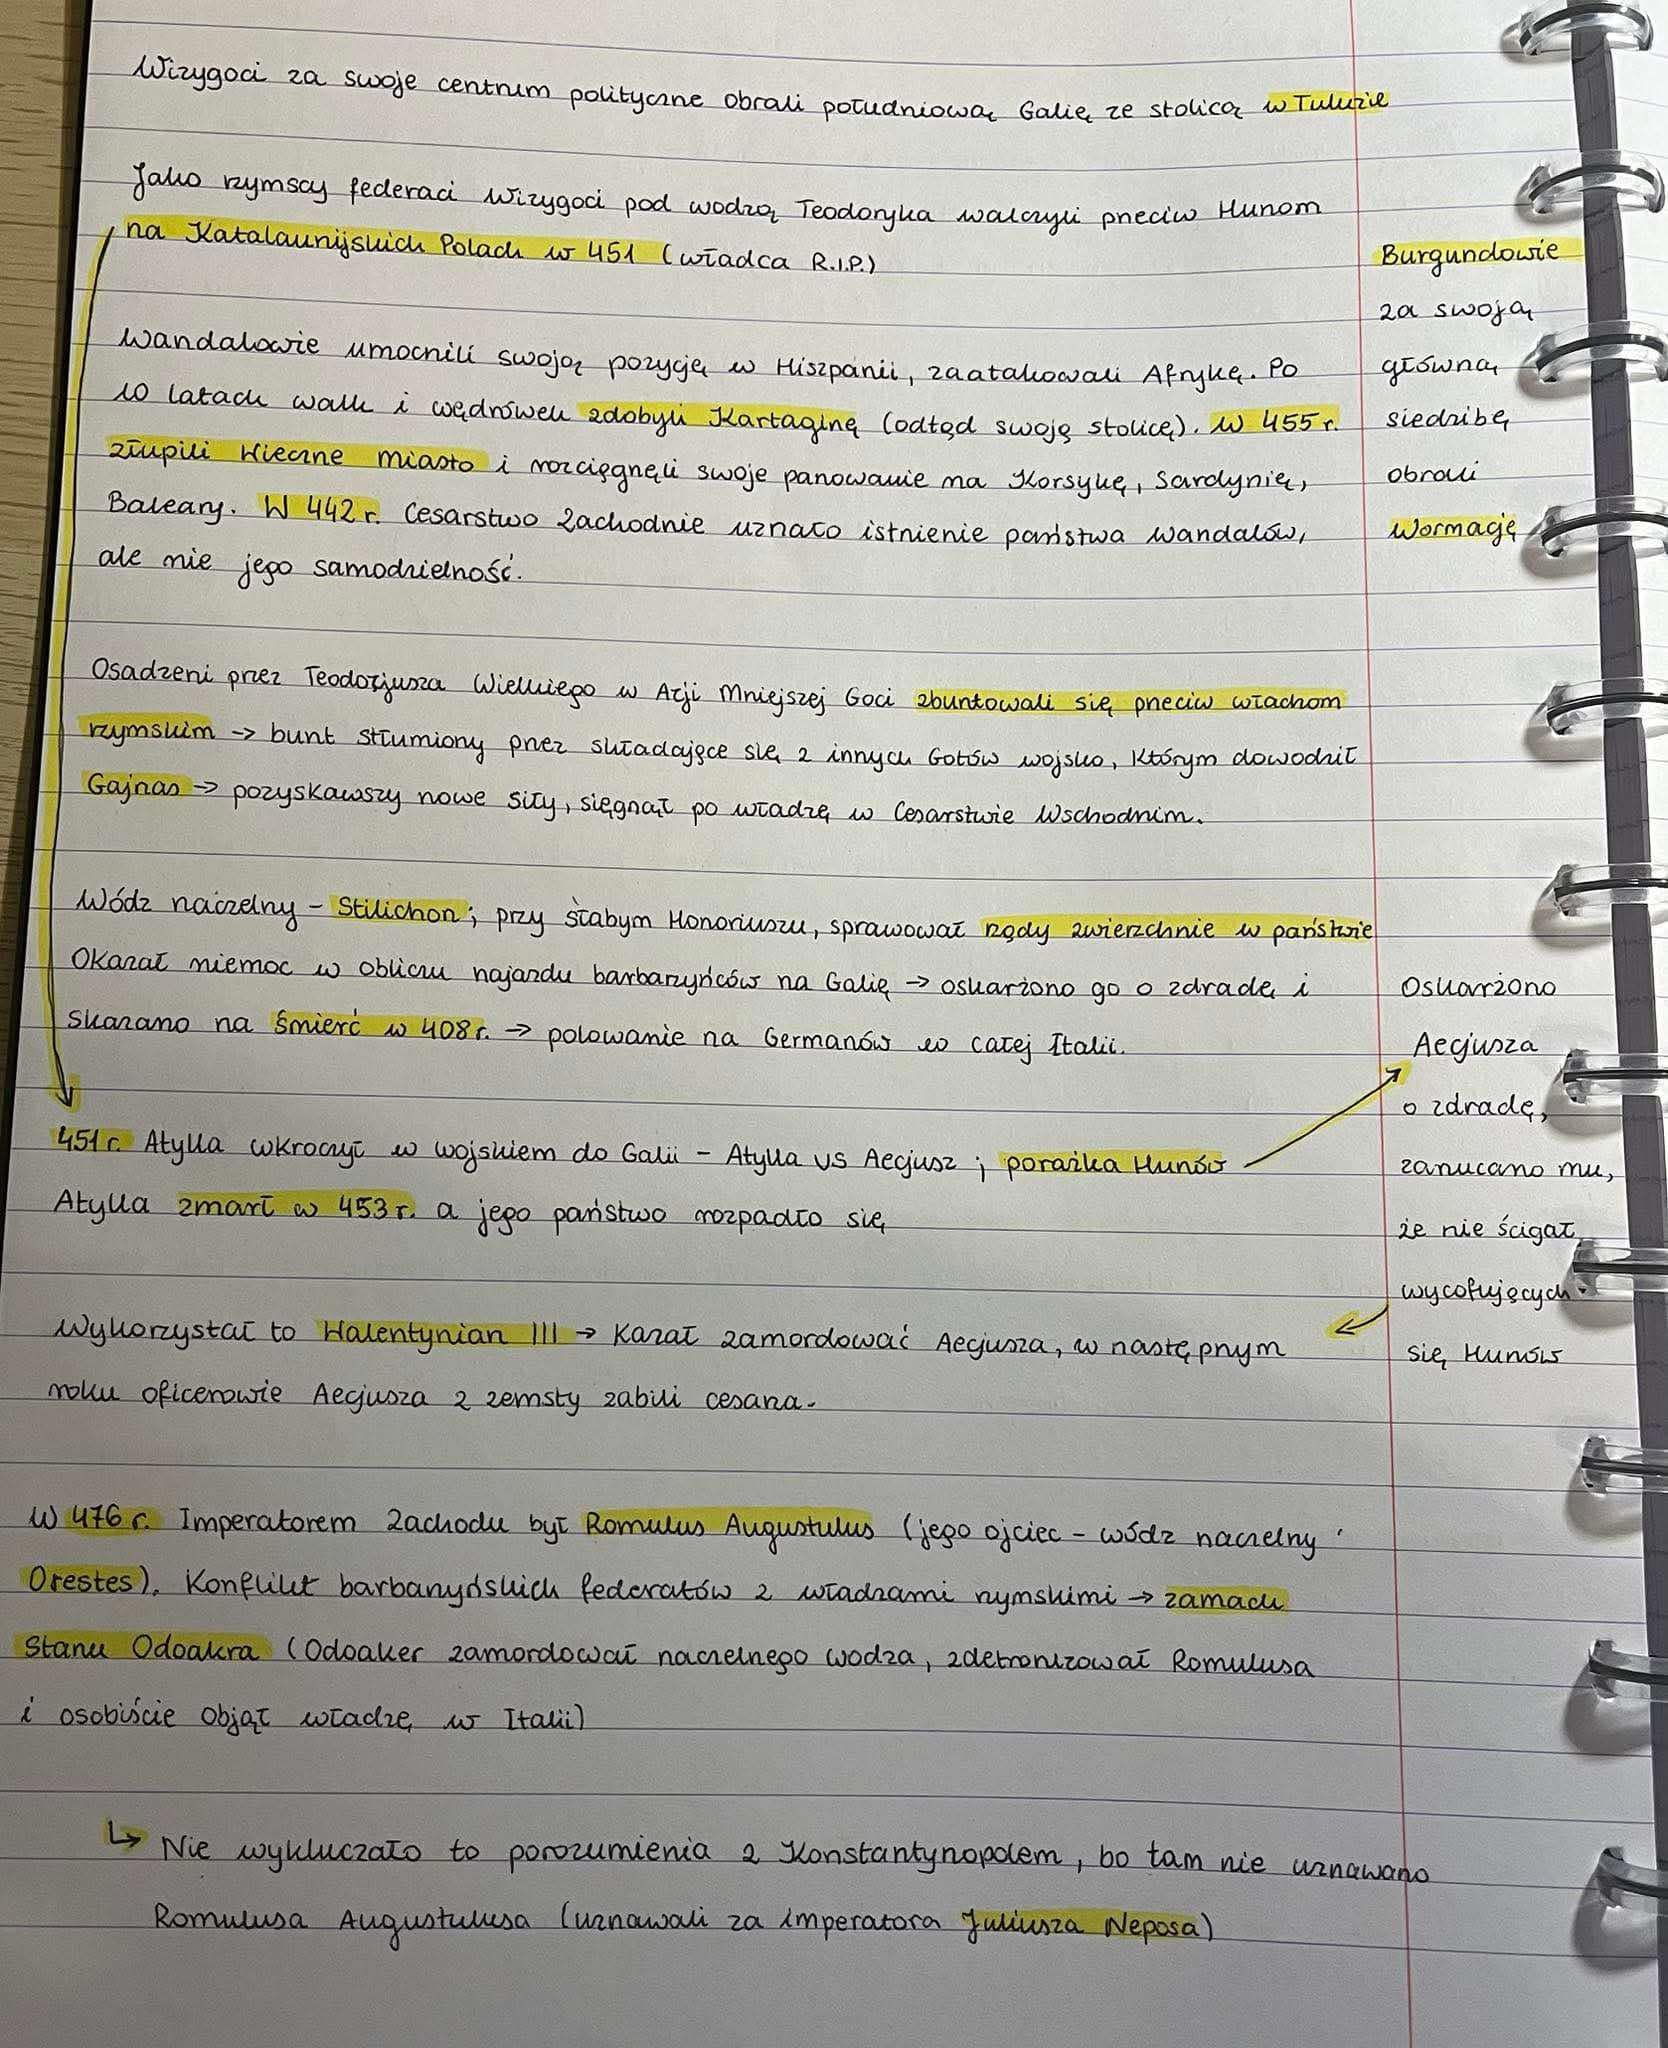 Wizygoci za swoje centrum polityczne obrali południową Galię ze stolicą w Tuluzie
Jako rzymscy federaci Wizygoci pod wodzą Teodoryka walczyli przeciw Hunom
na Katalaunijskich Polach w 451 (władca R.I.P.)
Wandalowie umocnili swoją pozycję w Hiszpanii, zaatakowali Afrykę. Po
10 latach walk i wędrówek zdobyli Kartaginę (odtąd swoję stolicę). W 455 r.
złupili Wieczne miasto i rozciągnęli swoje panowanie na Korsykę, Sardynię,
Baleary. W 442 r. Cesarstwo Zachodnie uznało istnienie państwa Wandalów,
ale nie jego samodzielność.
Burgundowie
za swoją
główną
siedzibę
obrali
Wormację
Osadzeni przez Teodozjusza Wielkiego w Azji Mniejszej Goci zbuntowali się przeciw włachom
rzymskim → bunt stłumiony przez składające się z innych Gotów wojsko, którym dowodził
Gajnas → pozyskawszy nowe siły, sięgnął po władzę w Cesarstwie Wschodnim.
Wódz naczelny - Stilichon; przy słabym Honoriuszu, sprawował rządy zwierzchnie w państwie
Okazał niemoc w obliczu najazdu barbarzyńców na Galię → oskarżono go o zdradę i
skazano na śmierć w 408 r. → polowanie na Germanów w całej Italii.
451 r. Atylla wkroczył w wojskiem do Galii - Atylla vs Aecjusz; porażka Hunów
Atylla zmarł w 453 r. a jego państwo rozpadło się
Oskarżono
Aecjusza
o zdradę,
zarzucano mu,
że nie ścigał
wycofujących
się Hunów
Wykorzystał to Walentynian III → kazał zamordować Aecjusza, w następnym
roku oficerowie Aecjusza z zemsty zabili cesarza.
W 476 r. Imperatorem Zachodu był Romulus Augustulus (jego ojciec - wódz naczelny
Orestes). Konflikt barbarzyńskich federatów z władzami rzymskimi → zamach
stanu Odoakra (Odoaker zamordował naczelnego wodza, zdetronizował Romulusa
i osobiście objął władzę w Italii)
↳ Nie wykluczało to porozumienia z Konstantynopolem, bo tam nie uznawano
Romulusa Augustulusa (uznawali za imperatora Juliusza Neposa)